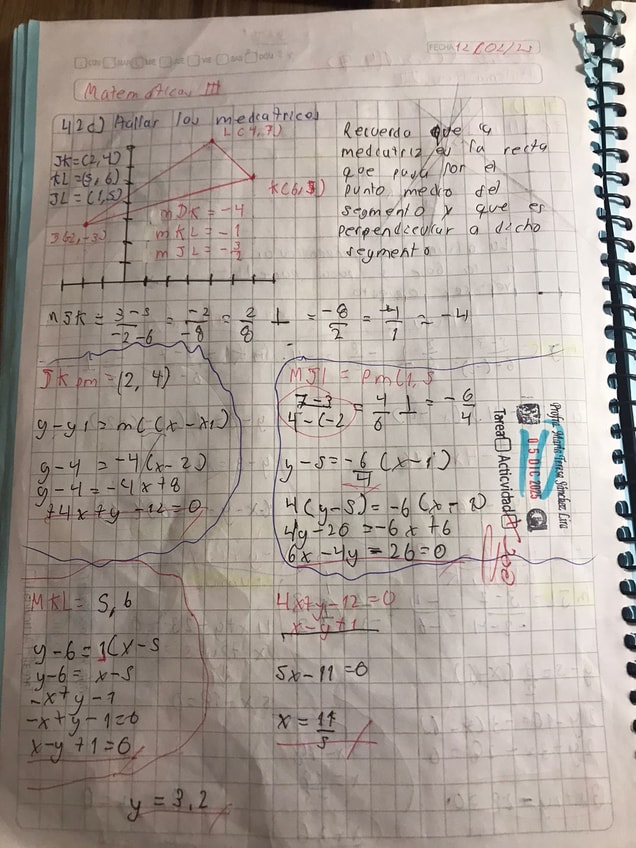 FECHA 12/02/2
Matematicas III
42c) Hallar las mediatrices
JK=(2,4)
KL=(5,6)
JL=(1,5)
L(4,7)
K(6,5)
J(-2,-3)
m JK = -4
m KL = -1
m JL = -3/2
Recuerda que la
mediatriz es la recta
que pasa por el
punto medio del
segmento y que es
perpendicular a dicho
segmento
mJK = 3-5/-2-6 = -2/-8 = 2/8 ⊥ = -8/2 = -4/1 = -4
JK pm = (2, 4)
y-y1 = m((x-x1)
y-4 = -4(x-2)
y-4 = -4x+8
+4x+y-12=0
MJL = Pm(1,5
7-3/4-(-2 = 4/6 ⊥ = -6/4
y-5 = -6/4 (x-1)
4(y-5) = -6(x-1)
4y-20 = -6x+6
6x-4y = 26=0
Profra.
Sánchez Lira
05 DIC 2025
Tarea Actividad
MKL = 5,6
y-6=1(x-5
y-6= x-5
-x+y-1
-x+y-1=0
x-y+1=0
4x+y-12=0
x-y+1
5x-11=0
x = 11/5
y = 3.2